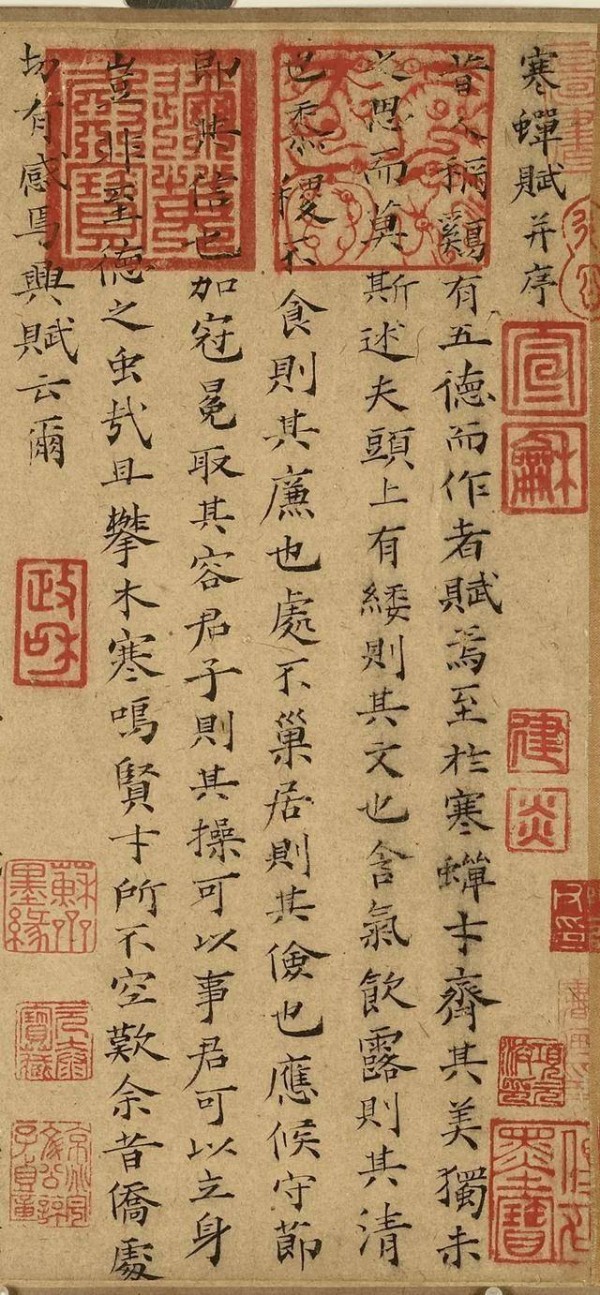 寒蟬賦并序
昔人稱鷄有五德而作者賦焉至於寒蟬才齊其美獨未
之思而莫斯述夫頭上有緌則其文也含氣飲露則其清
也黍稷不食則其廉也處不巢居則其儉也應候守節
即其信也加冠冕取其容君子則其操可以事君可以立身
豈非至德之虫哉且攀木寒鳴賢才所不空歎余昔僑處
切有感焉興賦云爾
宣龢
建炎
政和
蘇齋墨緣
墨寶